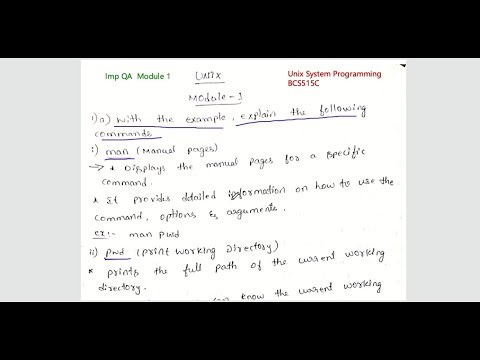 Imp QA Module 1
Unix
Unix System Programming
BCS515C
Module-1
1) a) with the example, explain the following
commands
i) man (Manual pages)
→ * Displays the manual pages for a specific
command.
* It provides detailed information on how to use the
command, options & arguments.
ex:- man pwd
ii) pwd (print working Directory)
* prints the full path of the current working
directory.
know the current working